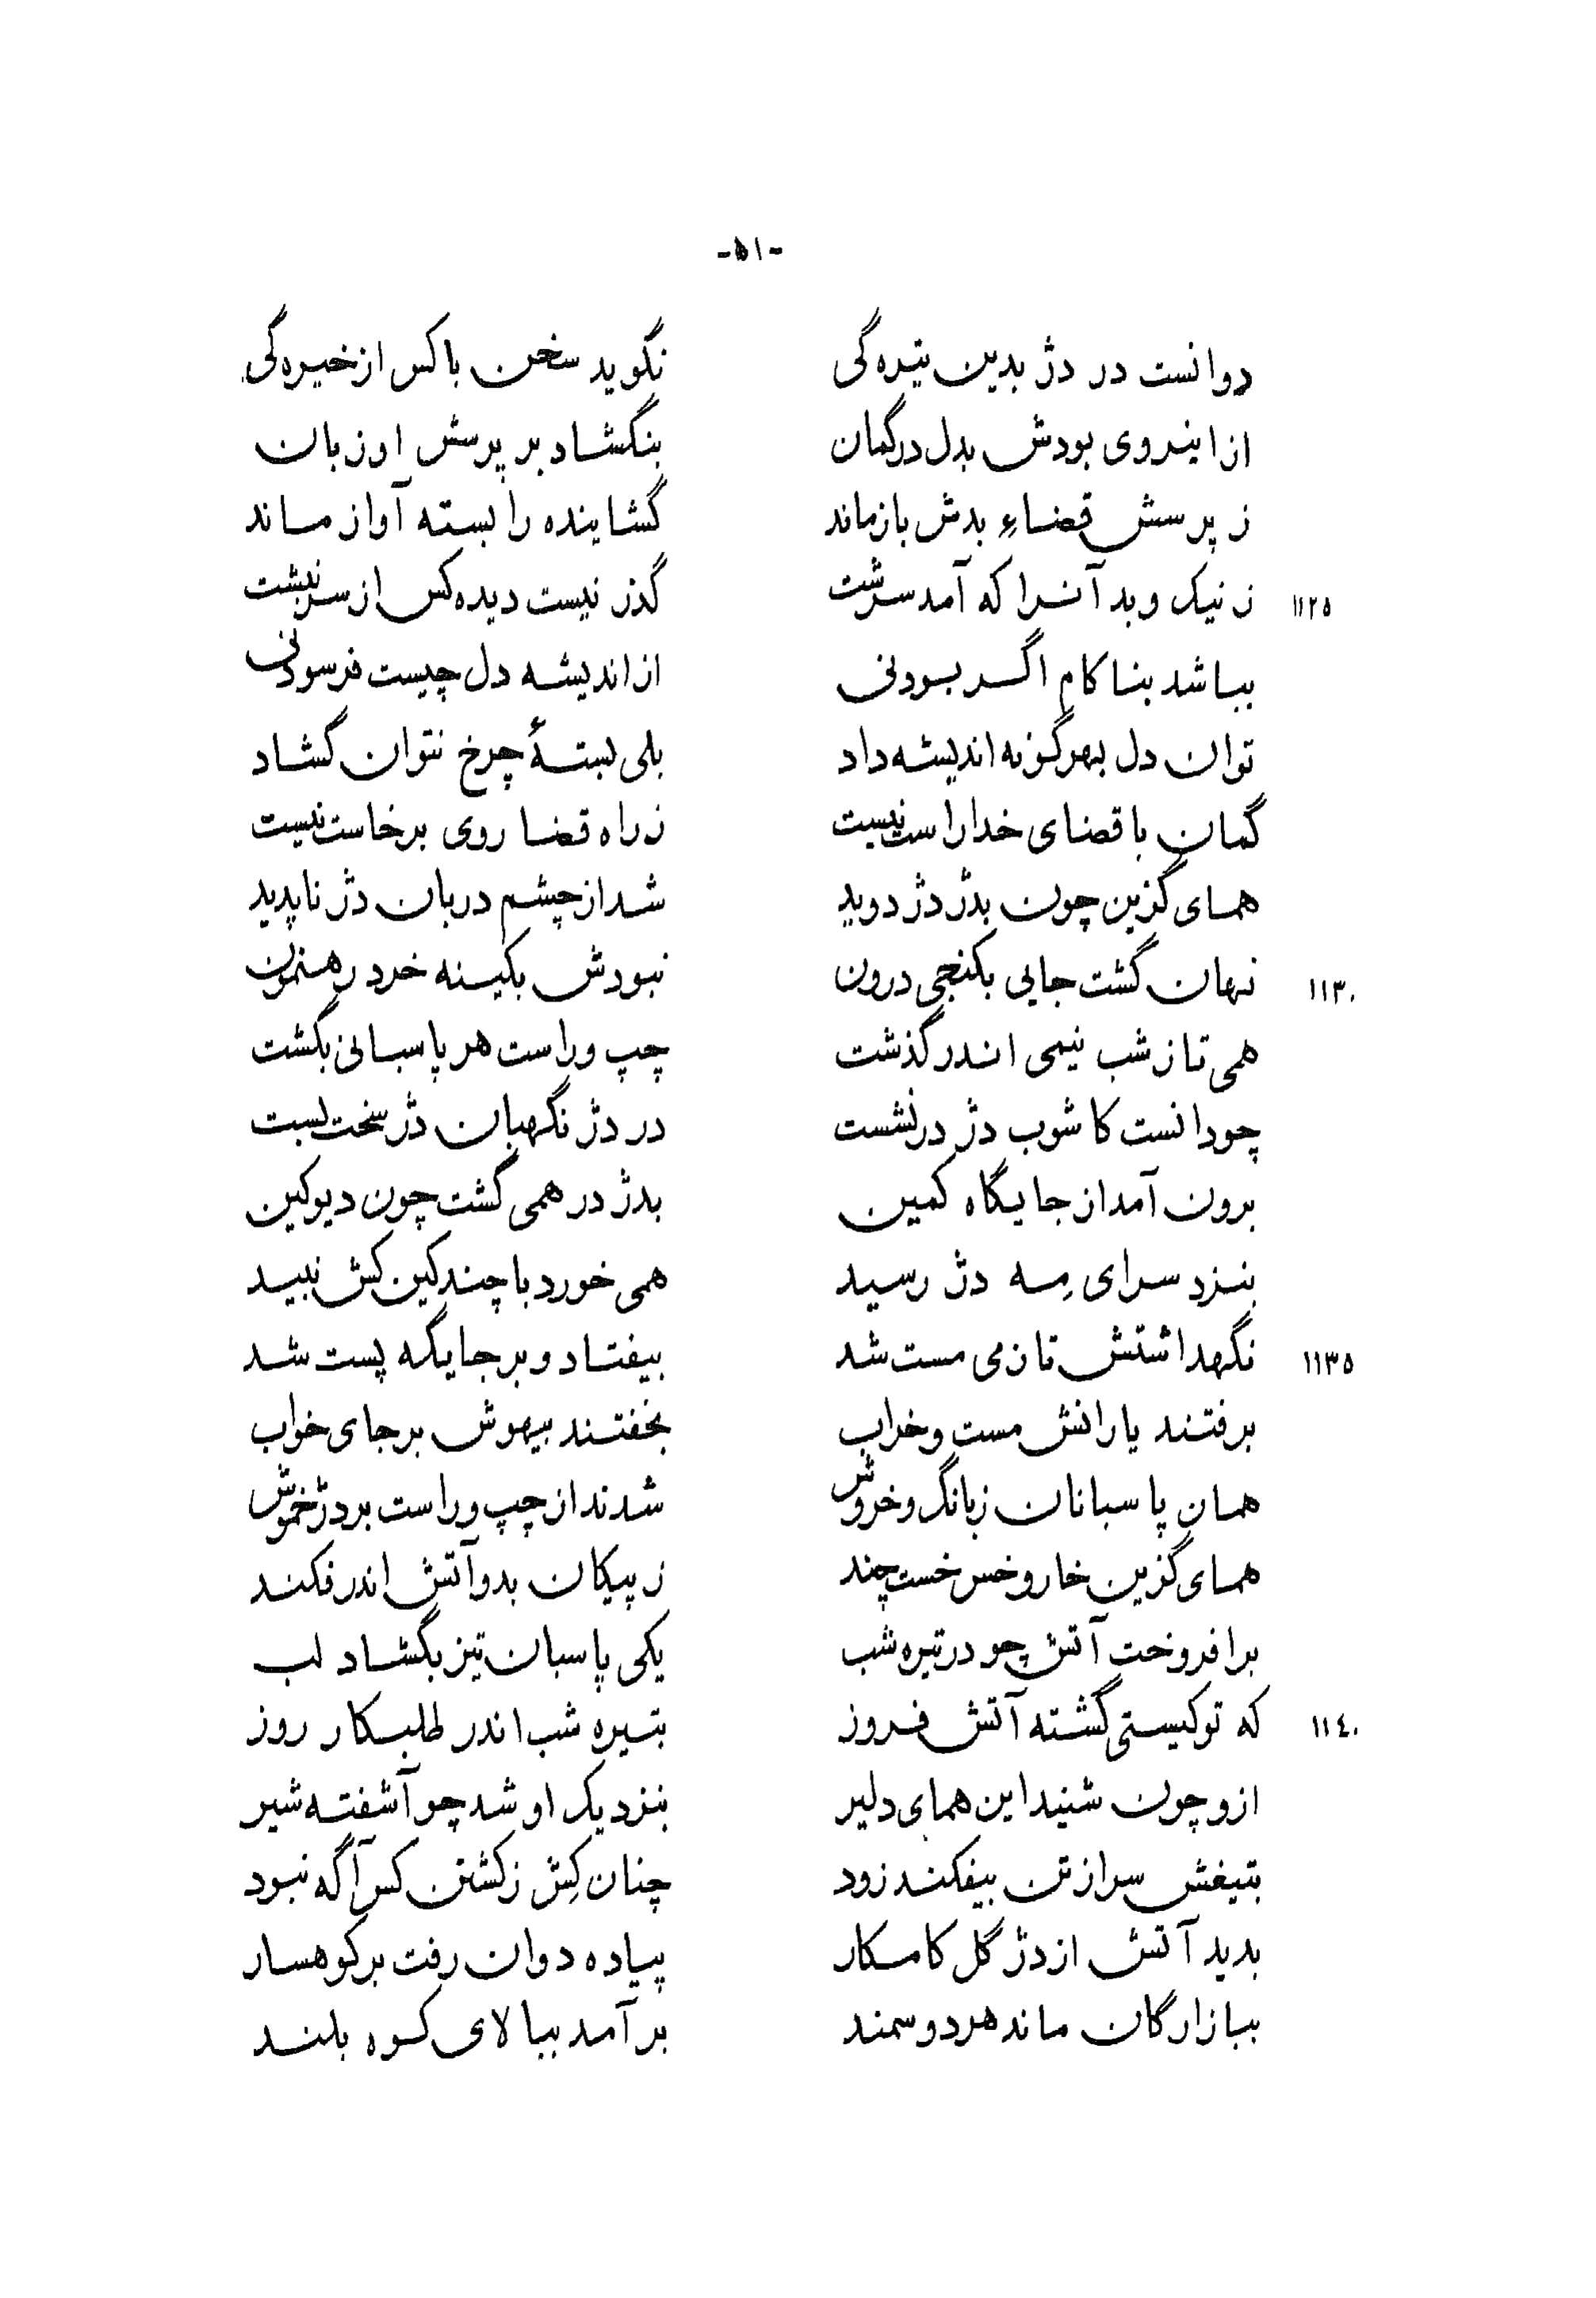 -۵۱-
دوانست در دژ بدین تیره‌گی نگوید سخن با کس از خیره‌گی
از اینروی بودش بدل در گمان بنگشاد بر پرسش او زبان
ز پرسش قضاءِ بدش باز ماند گشاینده را بسته آواز ماند
۱۱۲۵ ز نیک و بد آنرا که آمد سرشت گذر نیست دیده کس از سرنبشت
بباشد بناکام اگر بودنی از اندیشه دل چیست فرسودنی
توان دل بهرگونه اندیشه داد بلی بستهٔ چرخ نتوان گشاد
گمان با قضای خدا راست نیست ز راه قضا روی برخاست نیست
همای گزین چون بدژ دژ دوید شد از چشم دربان دژ ناپدید
۱۱۳۰ نهان گشت جایی بکنجی درون نبودش بکینه خرد رهنمون
همی تا ز شب نیمی اندر گذشت چپ و راست هر پاسبانی بگشت
چو دانست کاشوب دژ در نشست در دژ نگهبان دژ سخت بست
برون آمد از جایگاه کمین بدژ در همی گشت چون دیو کین
بنزد سرای مِه دژ رسید همی خورد با چند کین کش نبید
۱۱۳۵ نگهداشتش تا ز می مست شد بیفتاد و بر جایگه پست شد
برفتند یارانش مست و خراب بخفتند بیهوش بر جای خواب
همان پاسبانان ز بانگ و خروش شدند از چپ و راست بر دژ خموش
همای گزین خار و خس خست چند ز پیکان بدو آتش اندر فکند
برافروخت آتش چو در تیره شب یکی پاسبان تیز بگشاد لب
۱۱٤۰ که تو کیستی گشته آتش فروز بتیره شب اندر طلبکار روز
ازو چون شنید این همای دلیر بنزدیک او شد چو آشفته شیر
بتیغش سر از تن بیفکند زود چنان کِش ز کشتن کس آگه نبود
بدید آتش از دژ گل کامکار پیاده دوان رفت بر کوهسار
ببازارگان ماند هر دو سمند برآمد ببالای کوه بلند